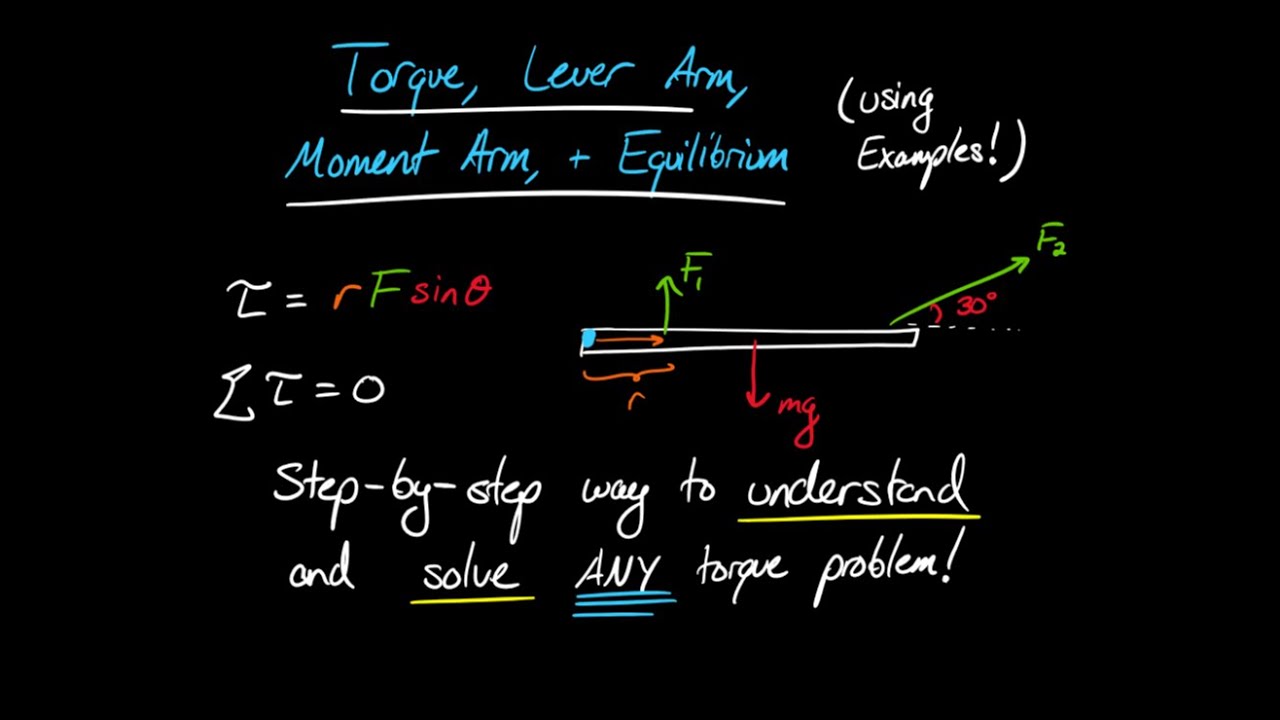 Torque, Lever Arm,
Moment Arm, + Equilibrium
(using
Examples!)
τ = rFsinθ
Στ = 0
F₁
F₂
30°
r
mg
Step-by-step way to understand
and solve ANY torque problem!